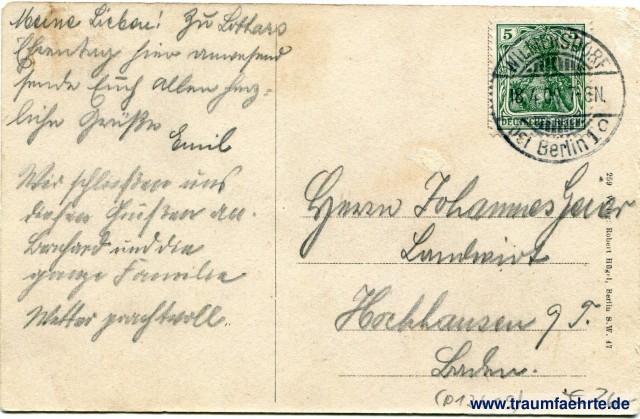 Meine Lieben! Zu Lothars
Ehrentag hier anwesend
sende Euch Allen herz-
liche Grüße
Emil
Wir schließen uns
diesen Grüßen an.
Bernhard und die
ganze Familie
Wetter prachtvoll.
5
DEUTSCHES REICH
WILMERSDORF
bei Berlin 1
Herrn Johannes Geier
Landwirt
Hochhausen a/T.
Baden.
259 Robert Hügel, Berlin S.W. 47
www.traumfaehrte.de